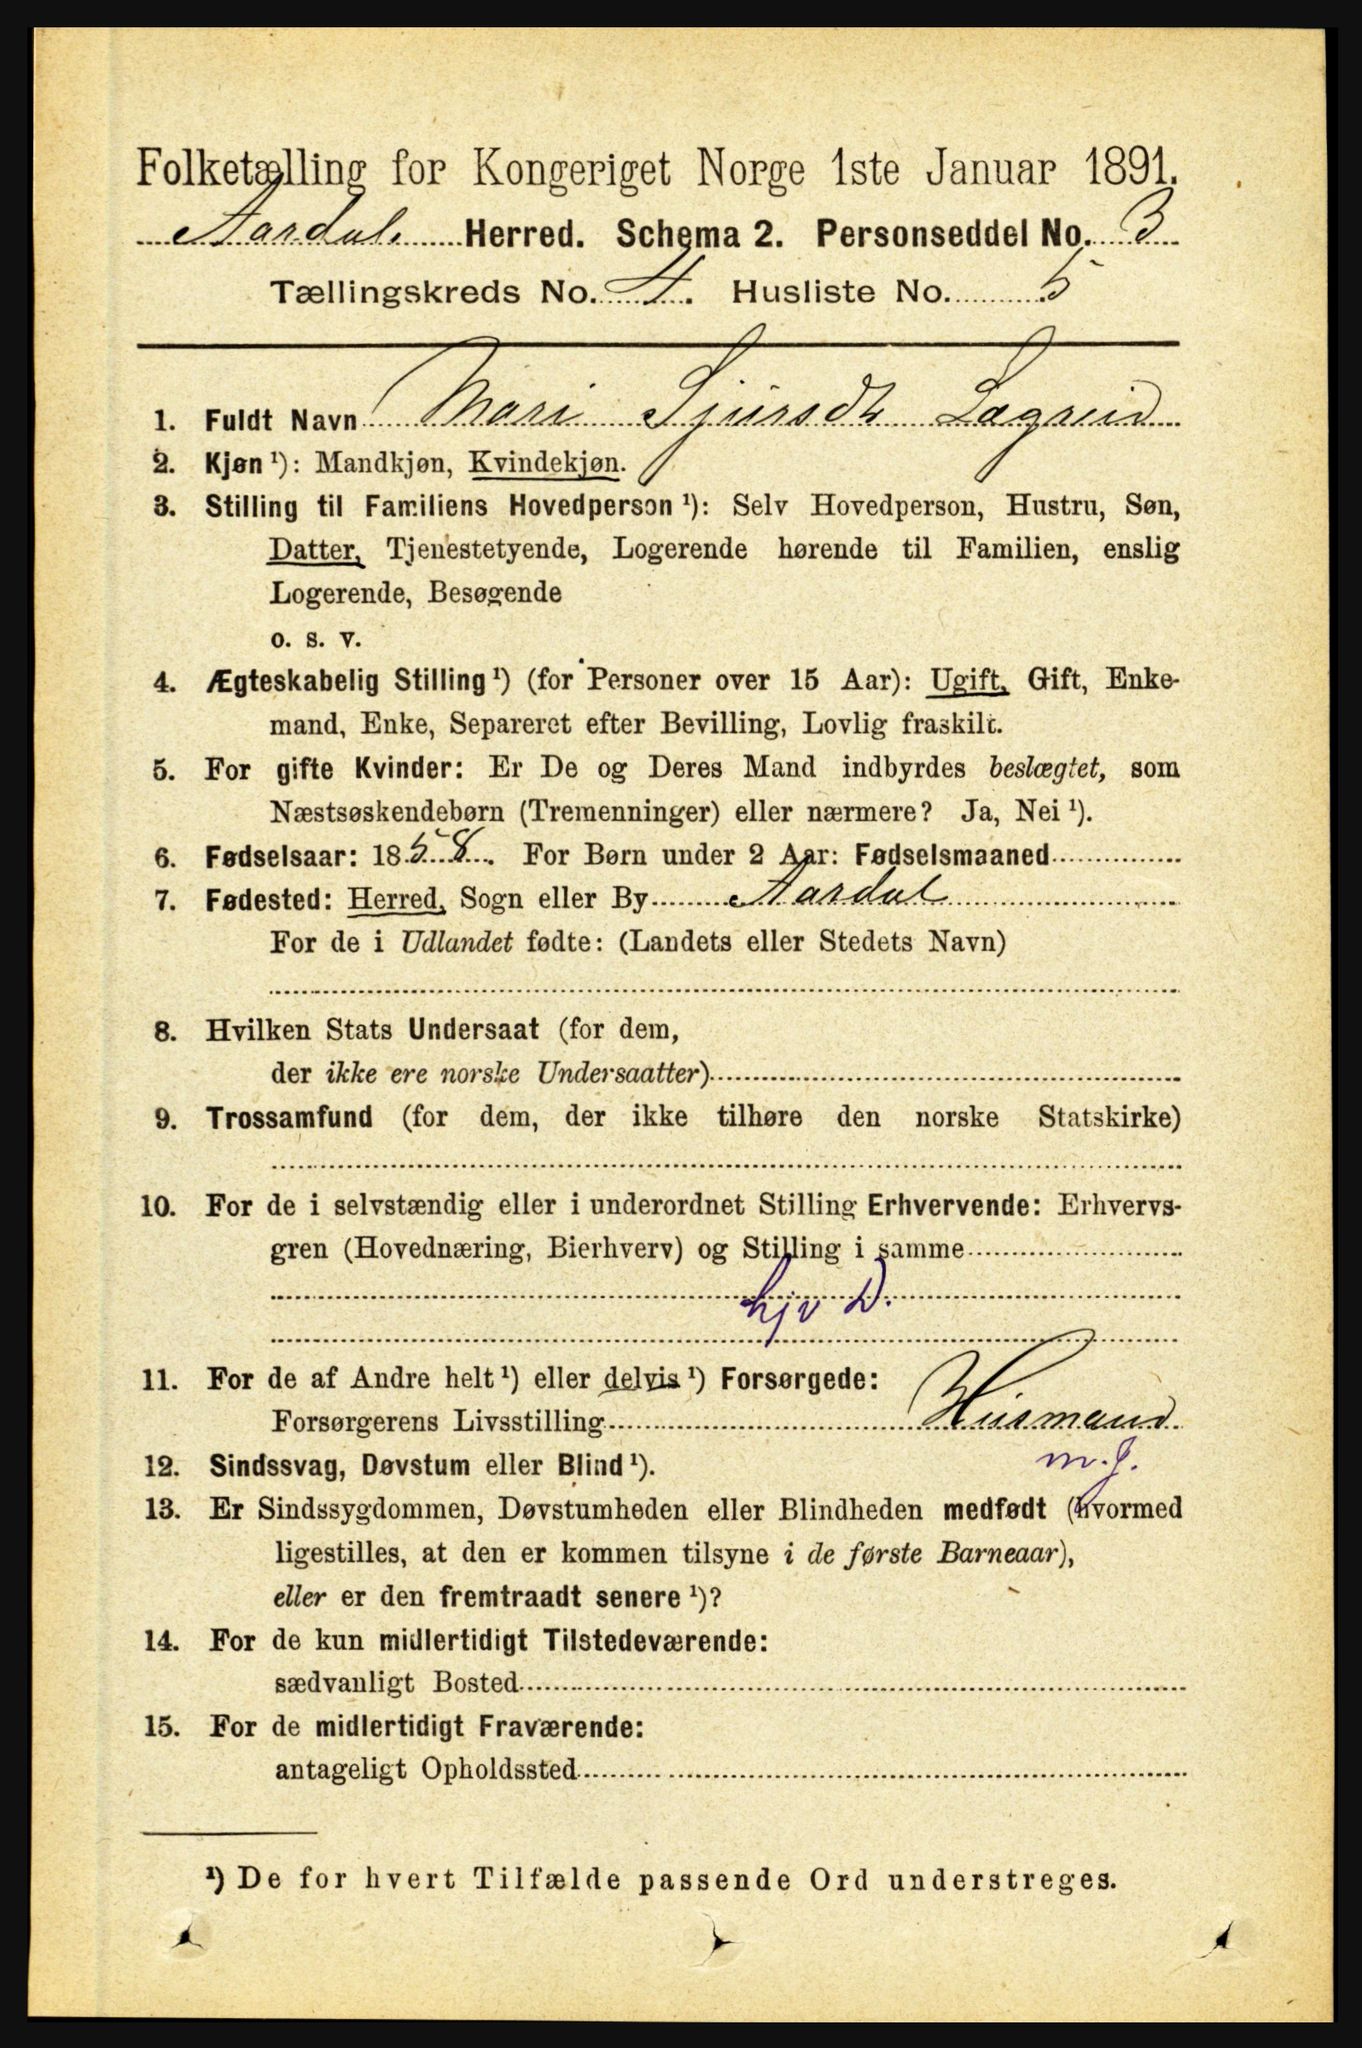 Folketælling for Kongeriget Norge 1ste Januar 1891.
Aardal Herred. Schema 2. Personseddel No. 3
Tællingskreds No. 4. Husliste No. 5
1. Fuldt Navn Mari Sjursdt Lægreid
2. Kjøn ¹): Mandkjøn, Kvindekjøn.
3. Stilling til Familiens Hovedperson ¹): Selv Hovedperson, Hustru, Søn,
Datter, Tjenestetyende, Logerende hørende til Familien, enslig
Logerende, Besøgende
o. s. v.
4. Ægteskabelig Stilling ¹) (for Personer over 15 Aar): Ugift, Gift, Enke-
mand, Enke, Separeret efter Bevilling, Lovlig fraskilt.
5. For gifte Kvinder: Er De og Deres Mand indbyrdes beslægtet, som
Næstsøskendebørn (Tremenninger) eller nærmere? Ja, Nei ¹).
6. Fødselsaar: 1858. For Børn under 2 Aar: Fødselsmaaned
7. Fødested: Herred, Sogn eller By Aardal
For de i Udlandet fødte: (Landets eller Stedets Navn)
8. Hvilken Stats Undersaat (for dem,
der ikke ere norske Undersaatter)
9. Trossamfund (for dem, der ikke tilhøre den norske Statskirke)
10. For de i selvstændig eller i underordnet Stilling Erhvervende: Erhvervs-
gren (Hovednæring, Bierhverv) og Stilling i samme
hjv D.
11. For de af Andre helt ¹) eller delvis ¹) Forsørgede:
Forsørgerens Livsstilling Husmand
12. Sindssvag, Døvstum eller Blind ¹). m. J.
13. Er Sindssygdommen, Døvstumheden eller Blindheden medfødt (hvormed
ligestilles, at den er kommen tilsyne i de første Barneaar),
eller er den fremtraadt senere ¹)?
14. For de kun midlertidigt Tilstedeværende:
sædvanligt Bosted
15. For de midlertidigt Fraværende:
antageligt Opholdssted
¹) De for hvert Tilfælde passende Ord understreges.